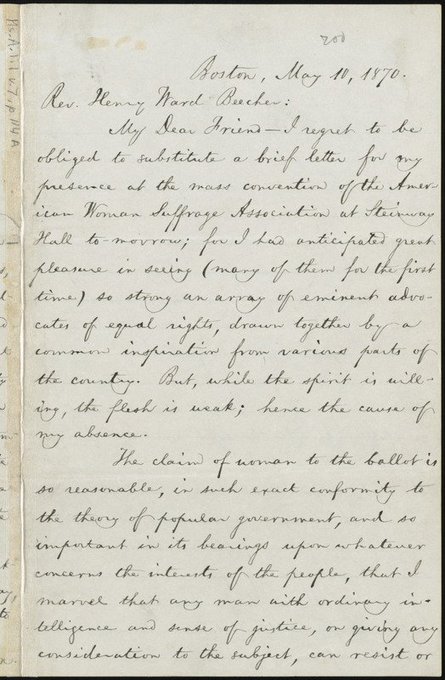 200
Boston, May 10, 1870.
Rev. Henry Ward Beecher:
My Dear Friend—I regret to be
obliged to substitute a brief letter for my
presence at the mass convention of the Amer-
ican Woman Suffrage Association at Steinway
Hall to-morrow; for I had anticipated great
pleasure in seeing (many of them for the first
time) so strong an array of eminent advo-
cates of equal rights, drawn together by a
common inspiration from various parts of
the country. But, while the spirit is will-
ing, the flesh is weak; hence the cause of
my absence.
The claim of woman to the ballot is
so reasonable, in such exact conformity to
the theory of popular government, and so
important in its bearings upon whatever
concerns the interests of the people, that I
marvel that any man with ordinary in-
telligence and sense of justice, on giving any
consideration to the subject, can resist or